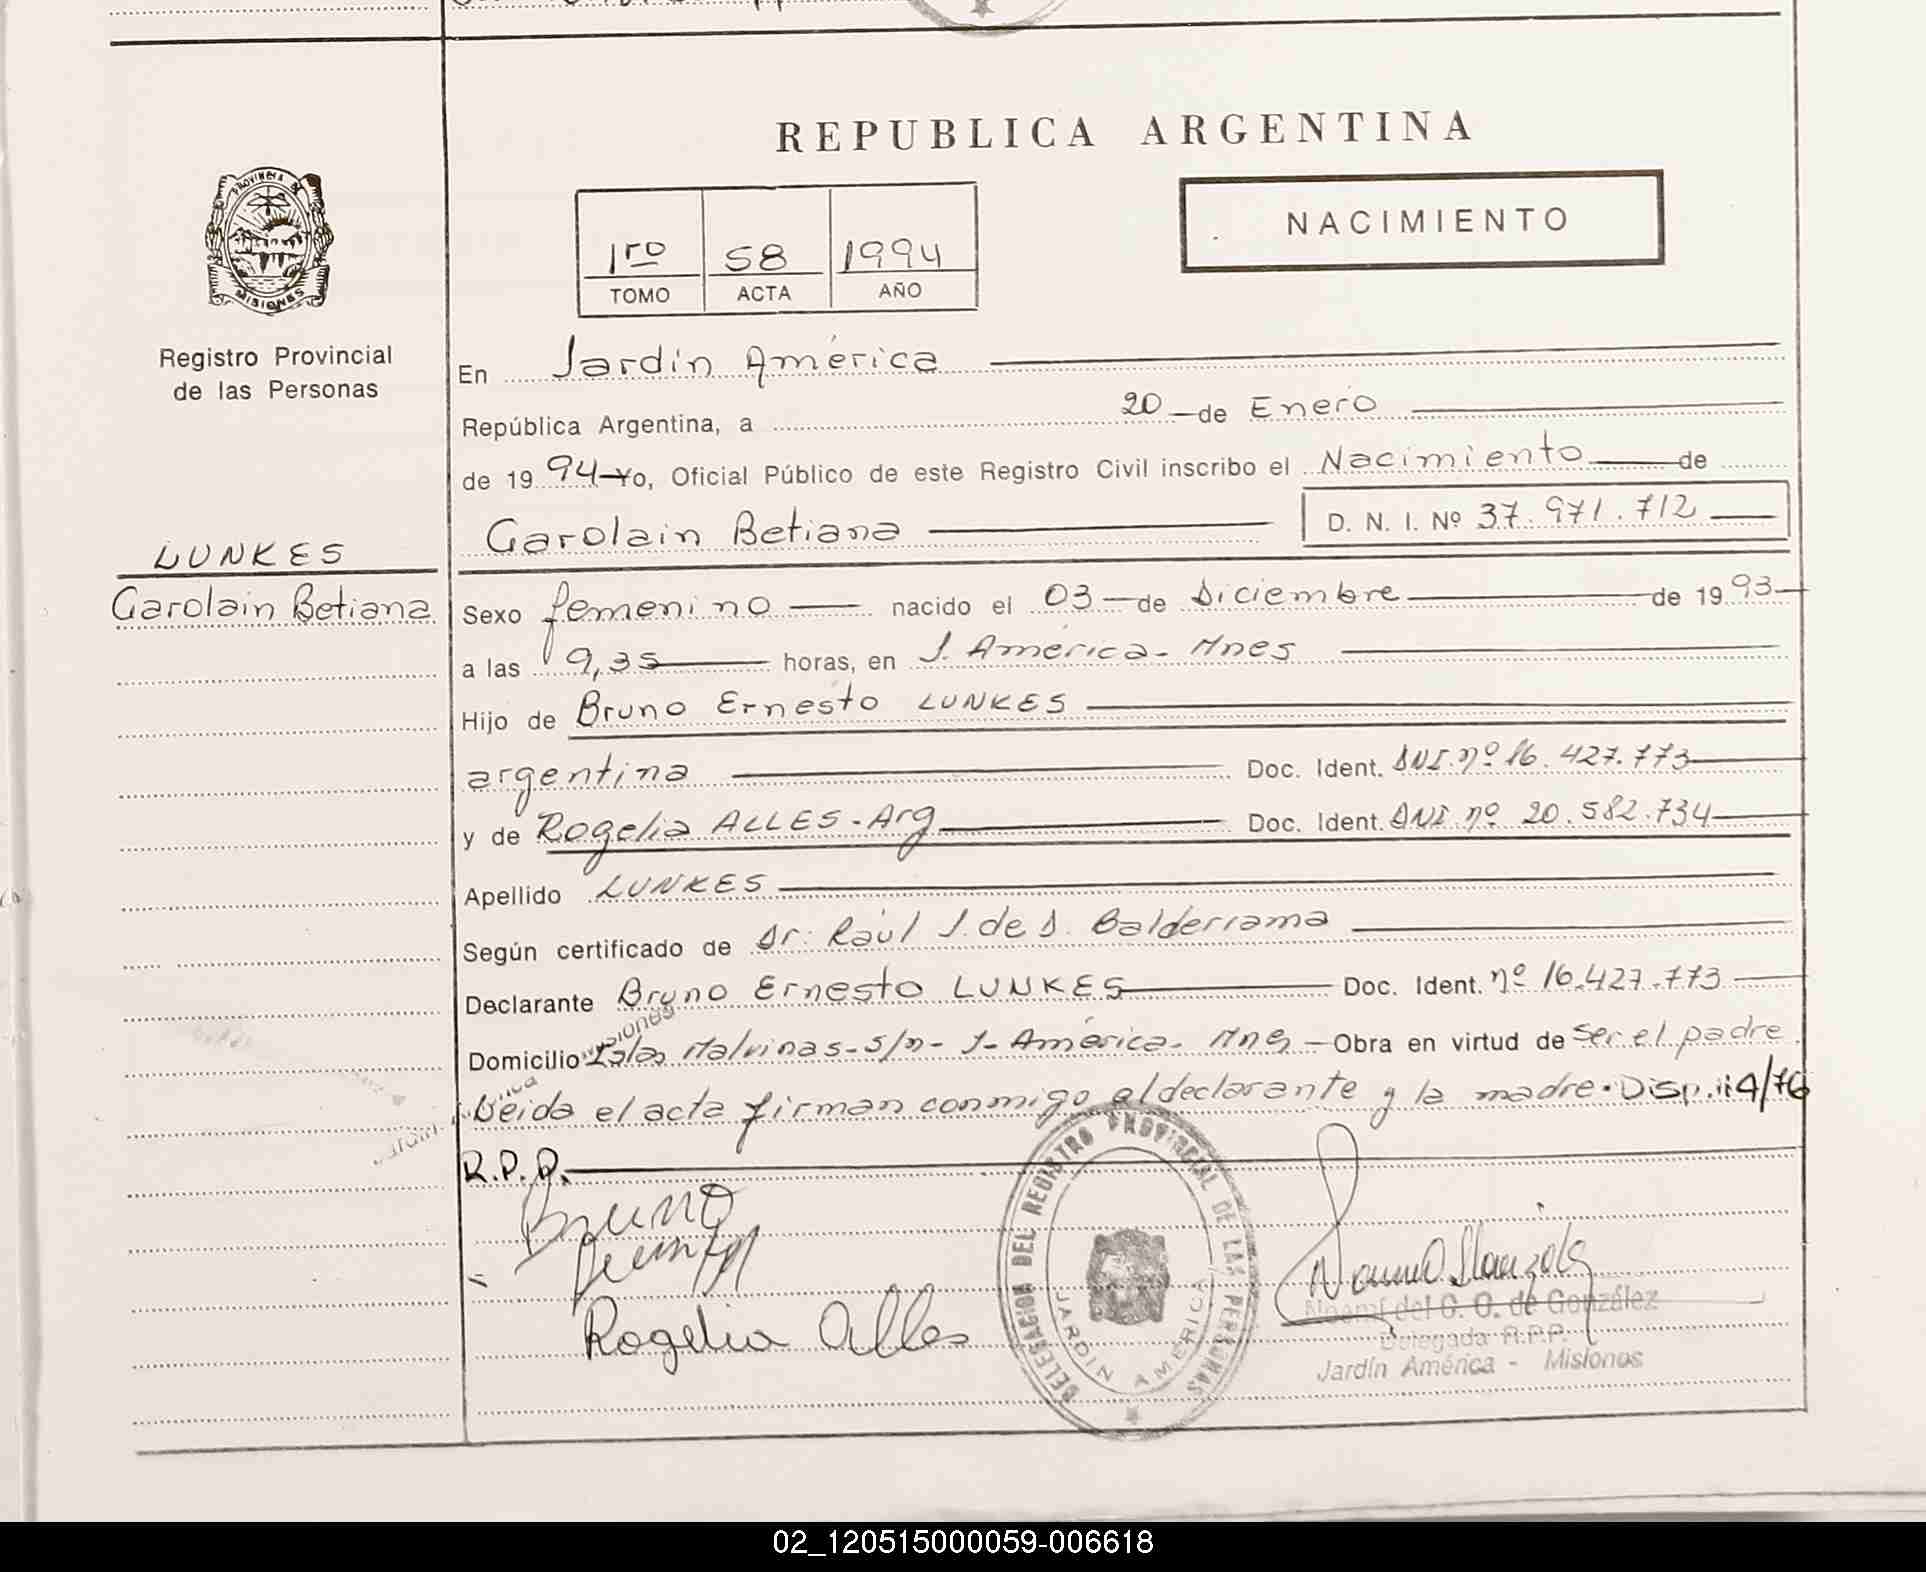 REPUBLICA ARGENTINA
PROVINCIA DE
MISIONES
Registro Provincial
de las Personas
1ro 58 1994
TOMO ACTA AÑO
NACIMIENTO
En Jardín América
República Argentina, a 20 de Enero
de 1994 Yo, Oficial Público de este Registro Civil inscribo el Nacimiento de
Garolain Betiana D. N. I. Nº 37.971.712
LUNKES
Garolain Betiana
Sexo femenino nacido el 03 de Diciembre de 1993
a las 9,35 horas, en J. América - Mnes
Hijo de Bruno Ernesto LUNKES
argentina Doc. Ident. DNI. nº 16.427.773
y de Rogelia ALLES - Arg Doc. Ident. DNI nº 20.582.734
Apellido LUNKES
Según certificado de Dr. Raúl J. de D. Balderrama
Declarante Bruno Ernesto LUNKES Doc. Ident. nº 16.427.773
Domicilio Islas Malvinas - s/n - J - América - Mnes Obra en virtud de ser el padre
Leida el acta firman conmigo el declarante y la madre. Disp. 114/76
R.P.P.
Bruno
Rogelia Alles
DELEGACION DEL REGISTRO PROVINCIAL DE LAS PERSONAS
JARDIN AMERICA
Noemí del C. O. de González
Delegada R.P.P.
Jardín América - Misiones
02_120515000059-006618